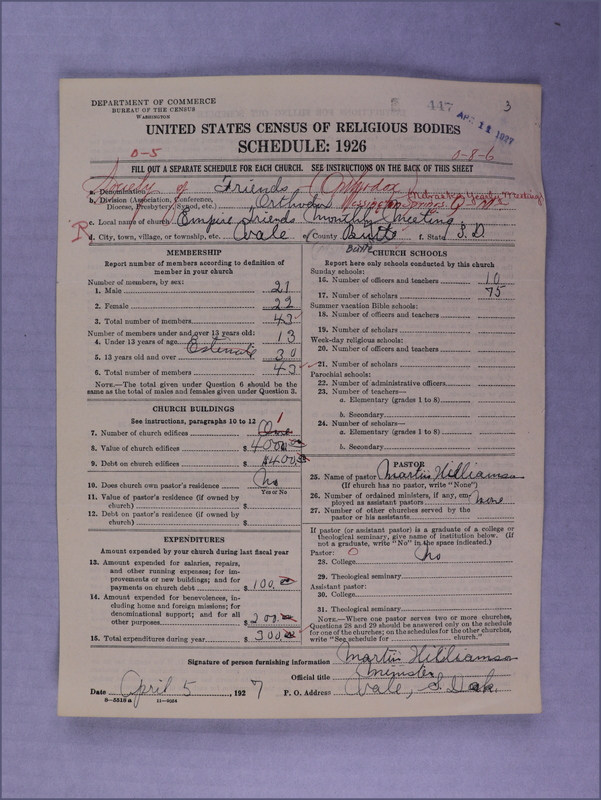 DEPARTMENT OF COMMERCE
BUREAU OF THE CENSUS
WASHINGTON
447
APR 12 1927
3
UNITED STATES CENSUS OF RELIGIOUS BODIES
SCHEDULE: 1926
0-5
0-8-6
FILL OUT A SEPARATE SCHEDULE FOR EACH CHURCH. SEE INSTRUCTIONS ON THE BACK OF THIS SHEET
a. Denomination Society of Friends (Orthodox
Nebraska Yearly Meeting)
b. Division (Association, Conference, Orthodox Wessington Springs Q M
Diocese, Presbytery, Synod, etc.)
c. Local name of church Empire Friends Monthly Meeting
R
d. City, town, village, or township, etc. Vale e. County Butte f. State S.D
Butte
MEMBERSHIP
Report number of members according to definition of
member in your church
Number of members, by sex:
1. Male 21
2. Female 22
3. Total number of members 43
Number of members under and over 13 years old:
4. Under 13 years of age 13
Estimate
5. 13 years old and over 30
6. Total number of members 43
NOTE.—The total given under Question 6 should be
the same as the total of males and females given under Question 3.
CHURCH BUILDINGS
See instructions, paragraphs 10 to 12
7. Number of church edifices One 1
8. Value of church edifices $ 4000.00
9. Debt on church edifices $ $400.00
10. Does church own pastor's residence No
Yes or No
11. Value of pastor's residence (if owned by
church) $
12. Debt on pastor's residence (if owned by
church) $
EXPENDITURES
Amount expended by your church during last fiscal year
13. Amount expended for salaries, repairs,
and other running expenses; for im-
provements or new buildings; and for
payments on church debt $ 100.00
14. Amount expended for benevolences, in-
cluding home and foreign missions; for
denominational support; and for all
other purposes $ 200.00
15. Total expenditures during year $ 300.00
CHURCH SCHOOLS
Report here only schools conducted by this church
Sunday schools:
16. Number of officers and teachers 10
17. Number of scholars 75
Summer vacation Bible schools:
18. Number of officers and teachers
19. Number of scholars
Week-day religious schools:
20. Number of officers and teachers
21. Number of scholars
Parochial schools:
22. Number of administrative officers
23. Number of teachers—
a. Elementary (grades 1 to 8)
b. Secondary
24. Number of scholars—
a. Elementary (grades 1 to 8)
b. Secondary
PASTOR
25. Name of pastor Martin H Williamson
(If church has no pastor, write "None")
26. Number of ordained ministers, if any, em-
ployed as assistant pastors none
27. Number of other churches served by the
pastor or his assistants
If pastor (or assistant pastor) is a graduate of a college or
theological seminary, give name of institution below. (If
not a graduate, write "No" in the space indicated.)
Pastor: 0
28. College No
29. Theological seminary
Assistant pastor:
30. College
31. Theological seminary
NOTE.—Where one pastor serves two or more churches,
Questions 28 and 29 should be answered only on the schedule
for one of the churches; on the schedules for the other churches,
write "See schedule for church."
Signature of person furnishing information Martin H Williamson
Official title Minister
Date April 5, 1927
P. O. Address Vale, S. Dak.
8-5318 a 11-9024